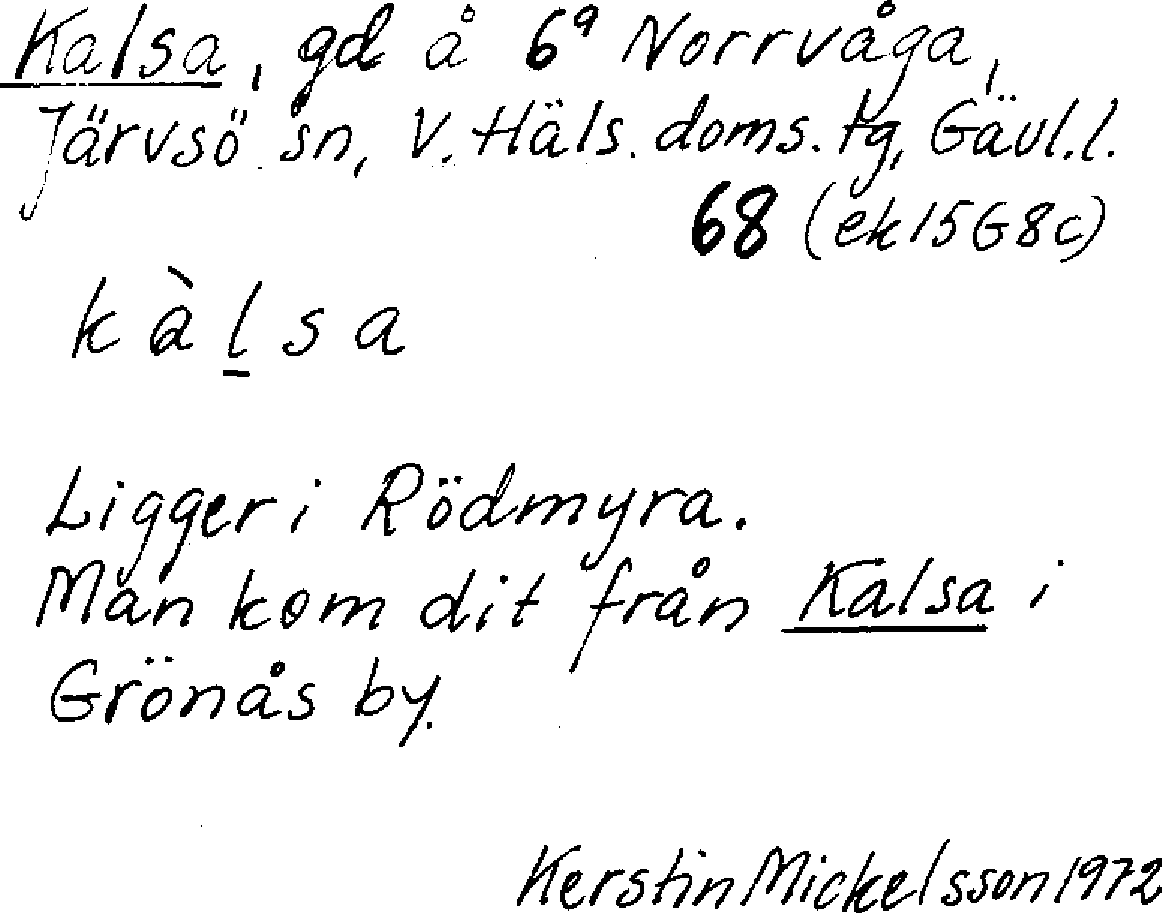 Kalsa, gd å 6⁹ Norrvåga,
Järvsö sn, V. Häls. doms. tg, Gävl.l.
68 (ek 15G8c)
kàl̲sa
Ligger i Rödmyra.
Man kom dit från Kalsa i
Grönås by.
Kerstin Mickelsson 1972